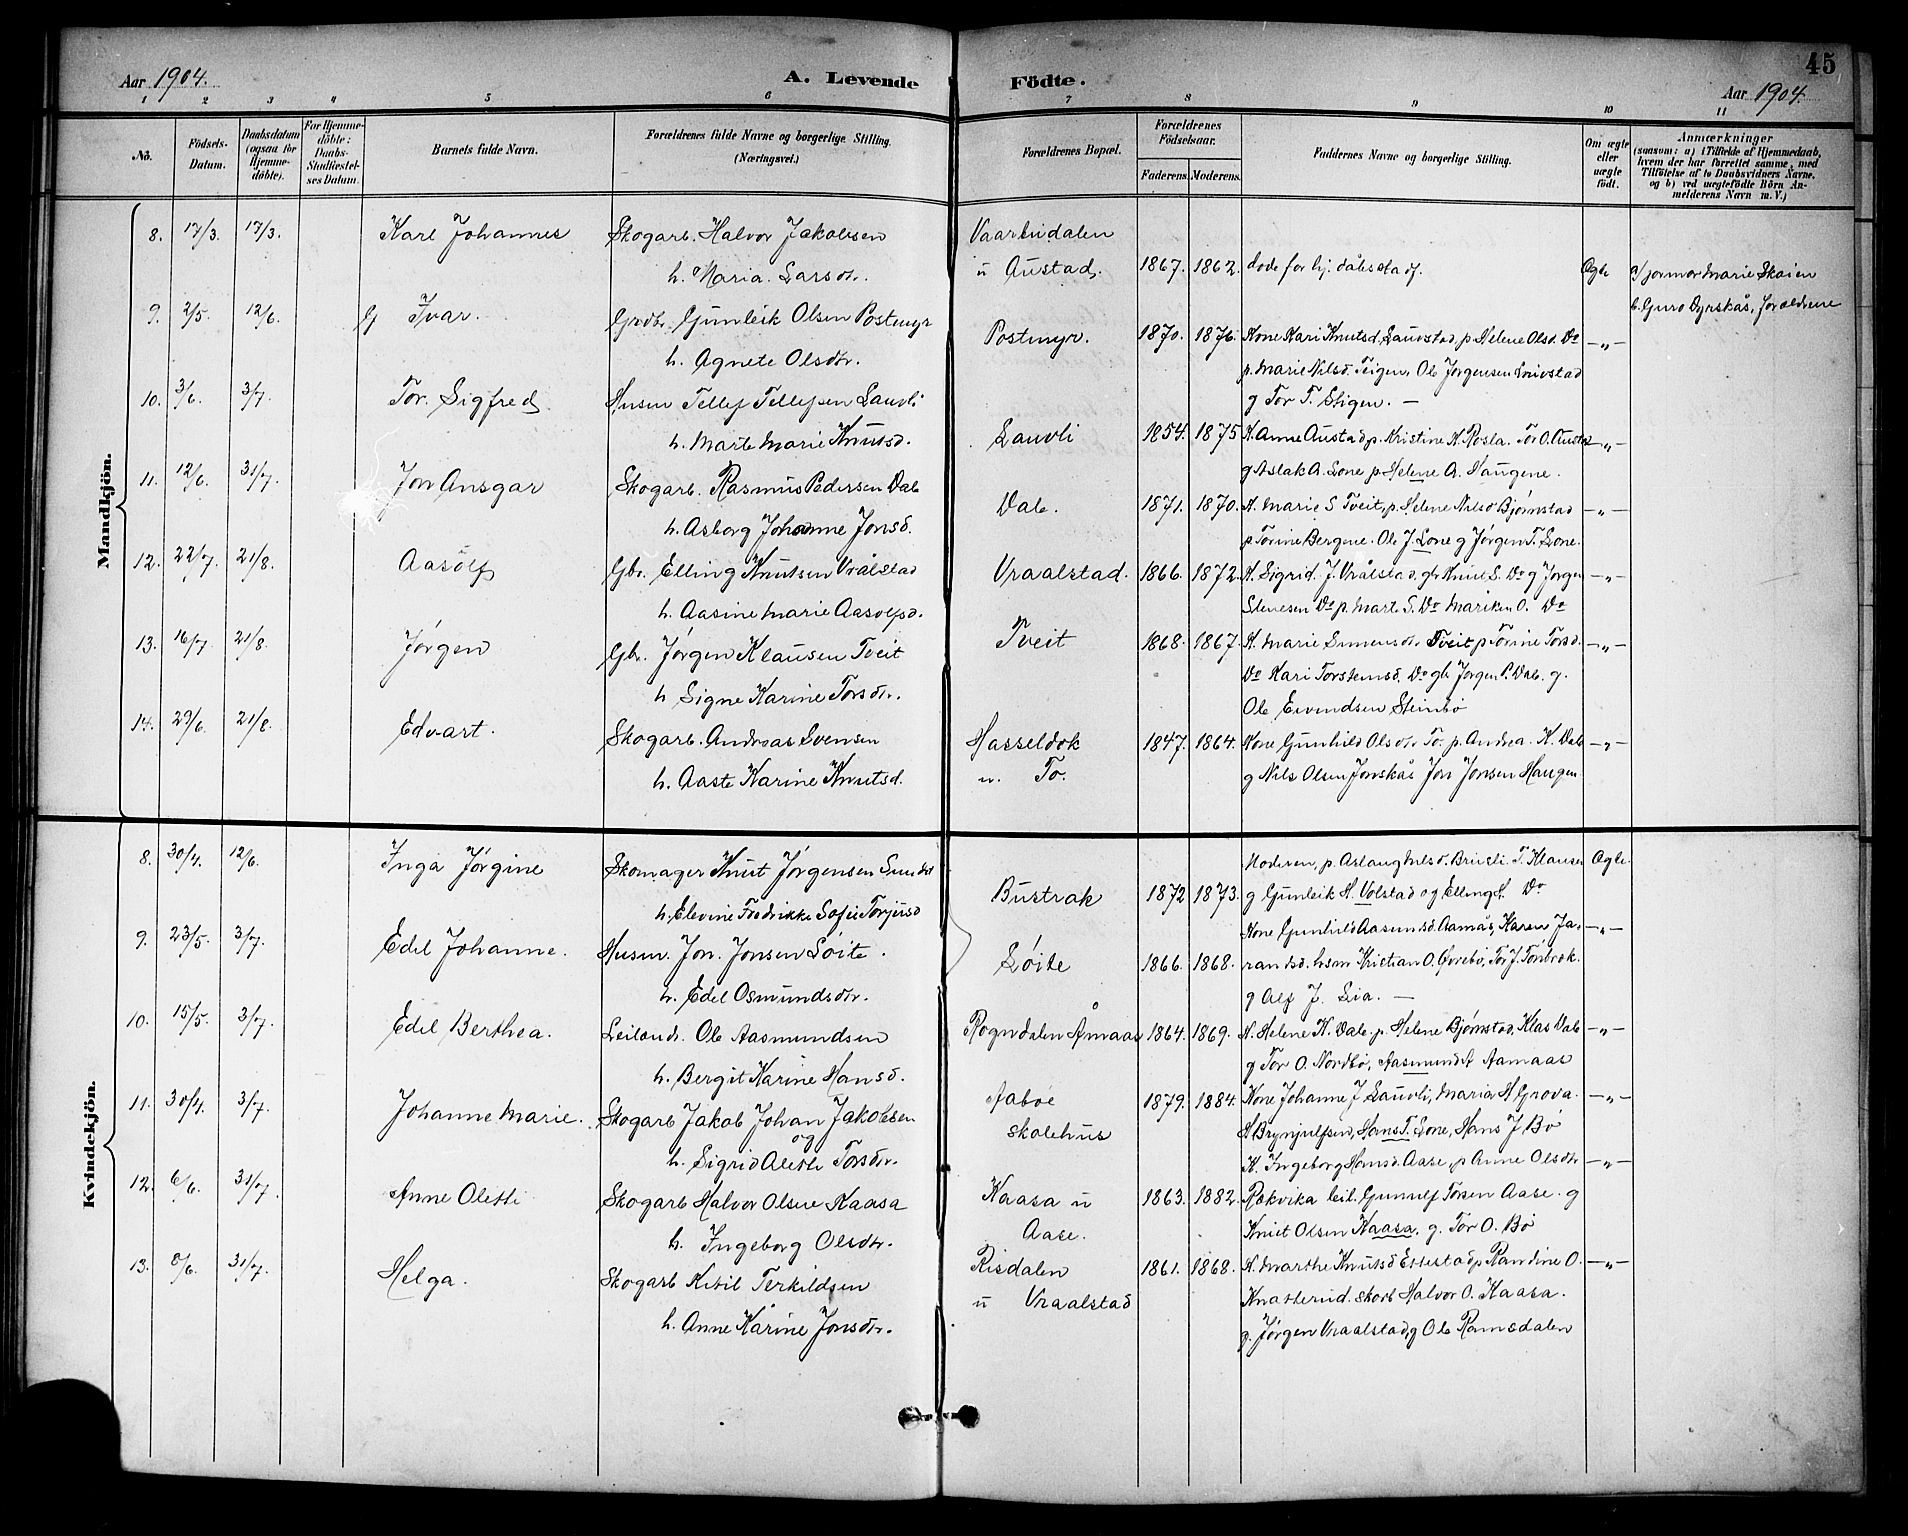 45
Aar 1904.
A. Levende Födte.
Aar 1904.
1 2 3 4 5 6 7 8 9 10 11
No.
Födsels-Datum.
Daabsdatum (ogsaa for Hjemme-döbte).
For Hjemme-döbte: Daabs-Stadfæstel-ses Datum.
Barnets fulde Navn.
Forældrenes fulde Navne og borgerlige Stilling. (Næringsvei.)
Forældrenes Bopæl.
Forældrenes Födselsaar.
Faderens. Moderens.
Faddernes Navne og borgerlige Stilling.
Om ægte eller uægte födt.
Anmærkninger
(saasom: a) i Tilfælde af Hjemmedaab,
hvem der har forrettet samme, med
Tilföielse af to Daabsvidners Navne,
og b) ved uægtefödte Börn An-
melderens Navn m. V.)
Mandkjön.
8. 17/3. 17/3. Karl Johannes Skogarb. Halvor Jakobsen Vaarlidalen
h. Maria Larsdr. u Austad. 1867. 1862. døde før hj. dåbsstadf. Ægte a) jormor Marie Skaien
b. Guro Dyrskås, forældrene
9. 2/5. 12/6. G Ivar. Grdbr. Gunleik Olsen Postmyr
h. Agnete Olsdtr. Postmyr. 1870. 1876. Kone Kari Knutsd. Lauvstad, p Helene Olsd. Do -"-
p. Marie Nilsd. Teigen, Ole Jørgensen Lauvstad
g Tor T. Stigen. —
10. 3/6. 3/7. Tor Sigfred Husm Tellef Tellefsen Lauvli
h. Marte Marie Knutsd. Lauvli 1854. 1875 K. Anne Austad p. Kristine K. Rosla. Tor O. Austad -"-
g Aslak A. Lone p Helene A. Haugene.
11. 12/6. 31/7. Jon Ansgar Skogarb. Rasmus Pedersen Dale
h. Asborg Johanne Jonsd. Dale. 1871. 1870. K. Marie S Tveit, p. Helene Nilsd Bjørnstad -"-
p Torine Bergene. Ole J. Lone g Jørgen T. Lone.
12. 22/7. 21/8. Aasolf Gbr. Elling Knutsen Vrålstad
h. Aasine Marie Aasolfsd. Vraalstad. 1866. 1872. K. Sigrid J. Vrålstad. gb. Knut S. Do g Jørgen -"-
Stenesen Do p. Marte T. Do Mariken O. Do
13. 16/7. 21/8. Jørgen Gbr. Jørgen Klausen Tveit
h Signe Karine Torsdr. Tveit 1868. 1867. K. Marie Simensdr. Tveit p Torine Torsd. -"-
Do Kari Torstensd. Do gb Jørgen P. Dale. g.
Ole Eivindsen Stembø
14. 29/6. 21/8. Edvart. Skogarb. Andreas Svensen
h. Aaste Karine Knutsd. Hasseldok u. To. 1847. 1864. Kone Gunhild Olsdr To. p. Andrea K. Dale -"-
g Nils Olsen Jonskås Jon Jonsen Haugen
Kvindekjön.
8. 30/4. 12/6. Inga Jørgine Skomager Knut Jørgensen
h. Elevine Fredrikke Sofie Torjusd Bustrak 1872 1873. Moderen, p. Aslaug Nilsd. T. Klausen Ægte.
g Gunleik H. Volstad og Elling H. Do
9. 23/5. 3/7. Edel Johanne. Husm. Jon Jonsen Løite.
h. Edel Osmundsdtr. Løite 1866. 1868. Kone Gunhild Aasmundsd. Aamås, Karen Ja- -"-
randsd. hsm Kristian O. Øvrebø, Tor J. Tønbrok.
g Alf J. Lia. —
10. 15/5. 3/7. Edel Berthea. Leiland. Ole Aasmundsen
h. Bergit Karine Hansd. Rogndalen Åmaas 1864. 1869. K. Helene K. Dale. p. Helene Bjørnstad, Klas Dale -"-
g Tor O. Nordbø, Aasmund A Aamaas
11. 30/4. 3/7. Johanne Marie. Skogarb Jakob Johan Jakobsen
og
h. Sigrid Alette Torsdr. Aabøe skolehus 1879. 1884. Kone Johanne J Lauvli, Maria H Grova. -"-
H Brynjulfsen, Hans T. Lone, Hans J Bø
12. 6/6. 31/7. Anne Olette Skogarb Halvor Olsen Kaasa
h. Ingeborg Olsdtr. Kaasa u Aase. 1863. 1882. K. Ingeborg Hansd. Aase, p Anne Olsdtr -"-
Rækvika leil. Gunnulf Torsen Aase. g
Knut Olsen Kaasa. g. Tor O. Bø
13. 8/6. 31/7. Helga. Skogarb Kitil Terkildsen
h. Anne Karine Jonsdr. Risdalen u Vraalstad 1861. 1868. K. Marthe Knutsd p Randine O. -"-
Knatterud. skarb Halvor O. Kaasa.
g. Jørgen Vraalstad, g Ole Ramsdalen